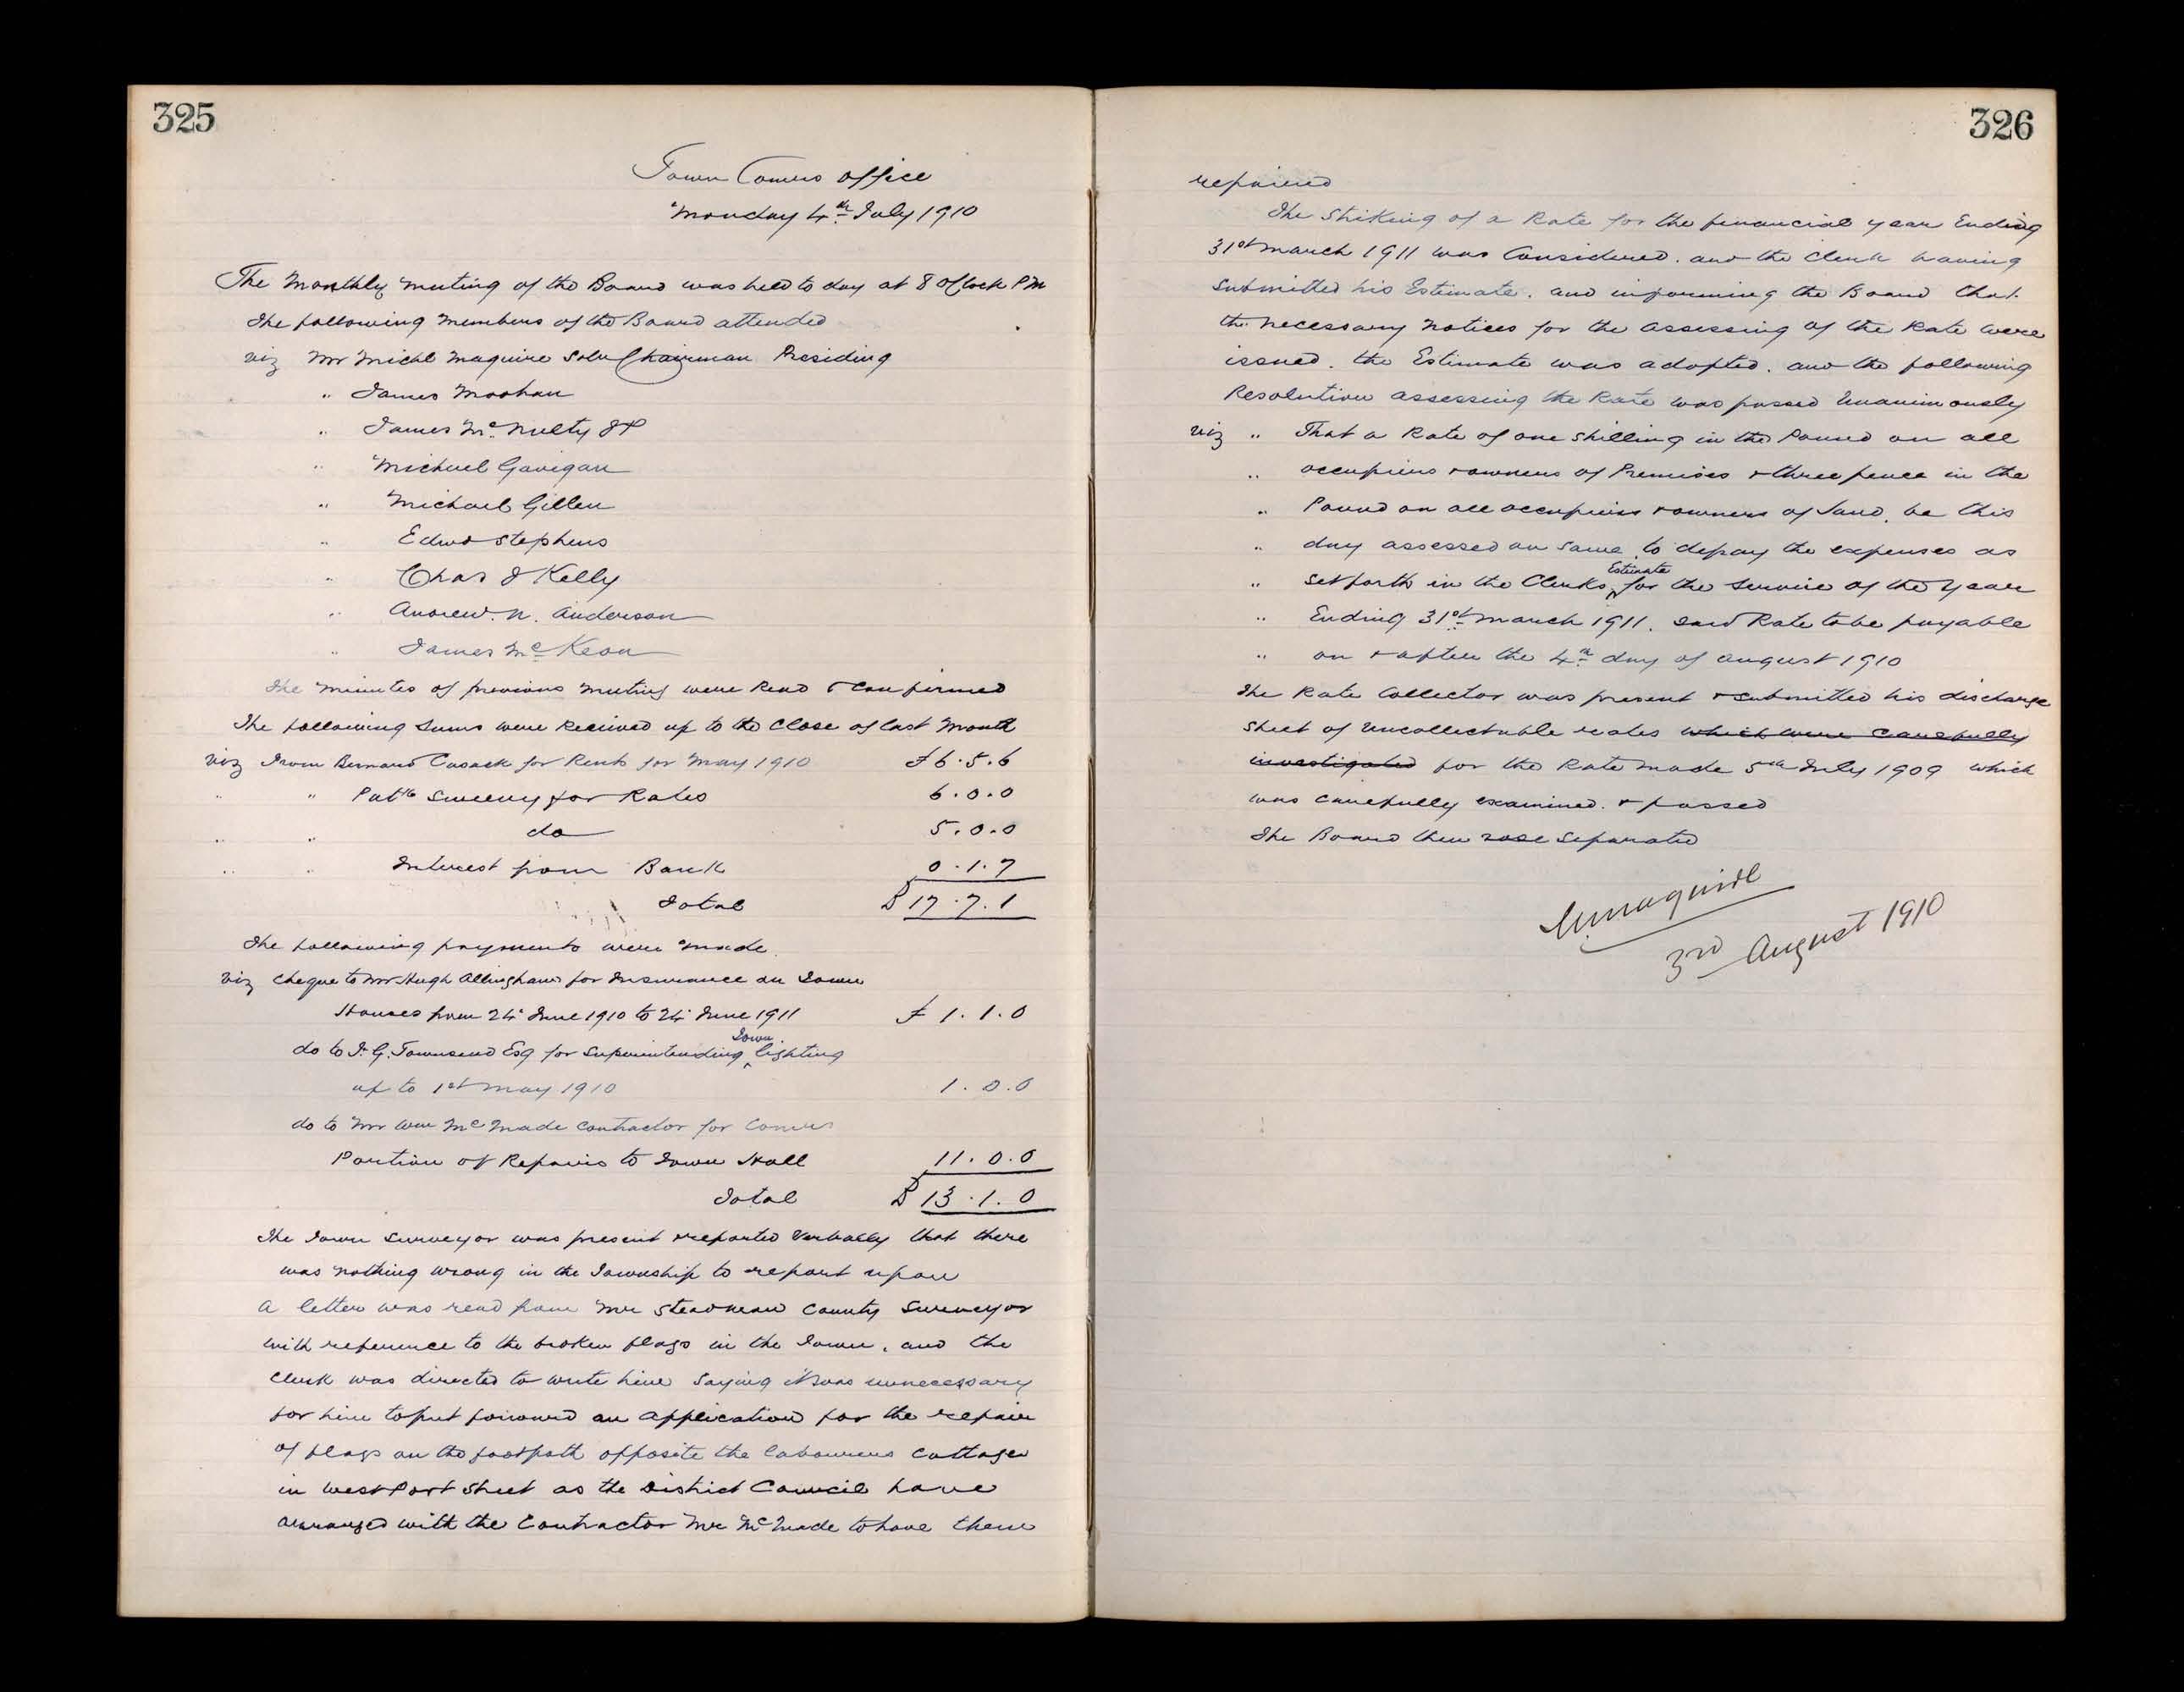 325
Town Comrs Office
Monday 4th July 1910
The Monthly meeting of the Board was held to day at 8 OClock PM
The following members of the Board attended
viz Mr Michl Maguire Solr Chairman Presiding
" James Moohan
" James McNulty JP
" Michael Gavigan
" Michael Gillen
" Edwd Stephens
" Chas J Kelly
" Andrew. N. Anderson
" James McKeon
The minutes of previous meeting were Read & Confirmed
The following sums were Received up to the Close of last Month
viz From Bernard Cusack for Rents for May 1910 £6.5.6
" " Patk Sweeny for Rates 6.0.0
" " do 5.0.0
" " Interest from Bank 0.1.7
Total £17.7.1
The following payments were made.
viz Cheque to Mr Hugh Allingham for Insurance on Town
Houses from 24 June 1910 to 24 June 1911 £1.1.0
do to F. G. Townsend Esq for Superintending Town lighting
up to 1st May 1910 1.0.0
do to Mr Wm McDade Contractor for Comrs
Portion of Repairs to Town Hall 11.0.0
Total £13.1.0
The Town Surveyor was present & reported Verbally that there
was nothing wrong in the Township to report upon
A letter was read from Mr Steadman County Surveyor
with reference to the broken flags in the Town, and the
Clerk was directed to write him saying it was unnecessary
for him to put forward an application for the repair
of flags on the footpath opposite the Labourers Cottages
in West Port Street as the District Council have
arranged with the Contractor Mr McDade to have them
326
repaired
The Striking of a Rate for the financial year Ending
31st March 1911 was Considered. and the Clerk having
Submitted his Estimate. and informing the Board that
the necessary notices for the assessing of the Rate were
issued. the Estimate was adopted. and the following
Resolution assessing the Rate was passed Unanimously
viz " That a Rate of one shilling in the Pound on all
" occupiers & owners of Premises & three pence in the
" Pound on all occupiers & owners of Land. be this
" day assessed on same to defray the expenses as
" set forth in the Clerks Estimate for the service of the Year
" Ending 31st March 1911. said Rate to be payable
" on & after the 4th day of August 1910
The Rate Collector was present & submitted his discharge
sheet of uncollectable rates which were carefully
investigated for the Rate made 5th July 1909 which
was carefully examined. & passed
The Board then rose separated
M Maguire
3rd August 1910